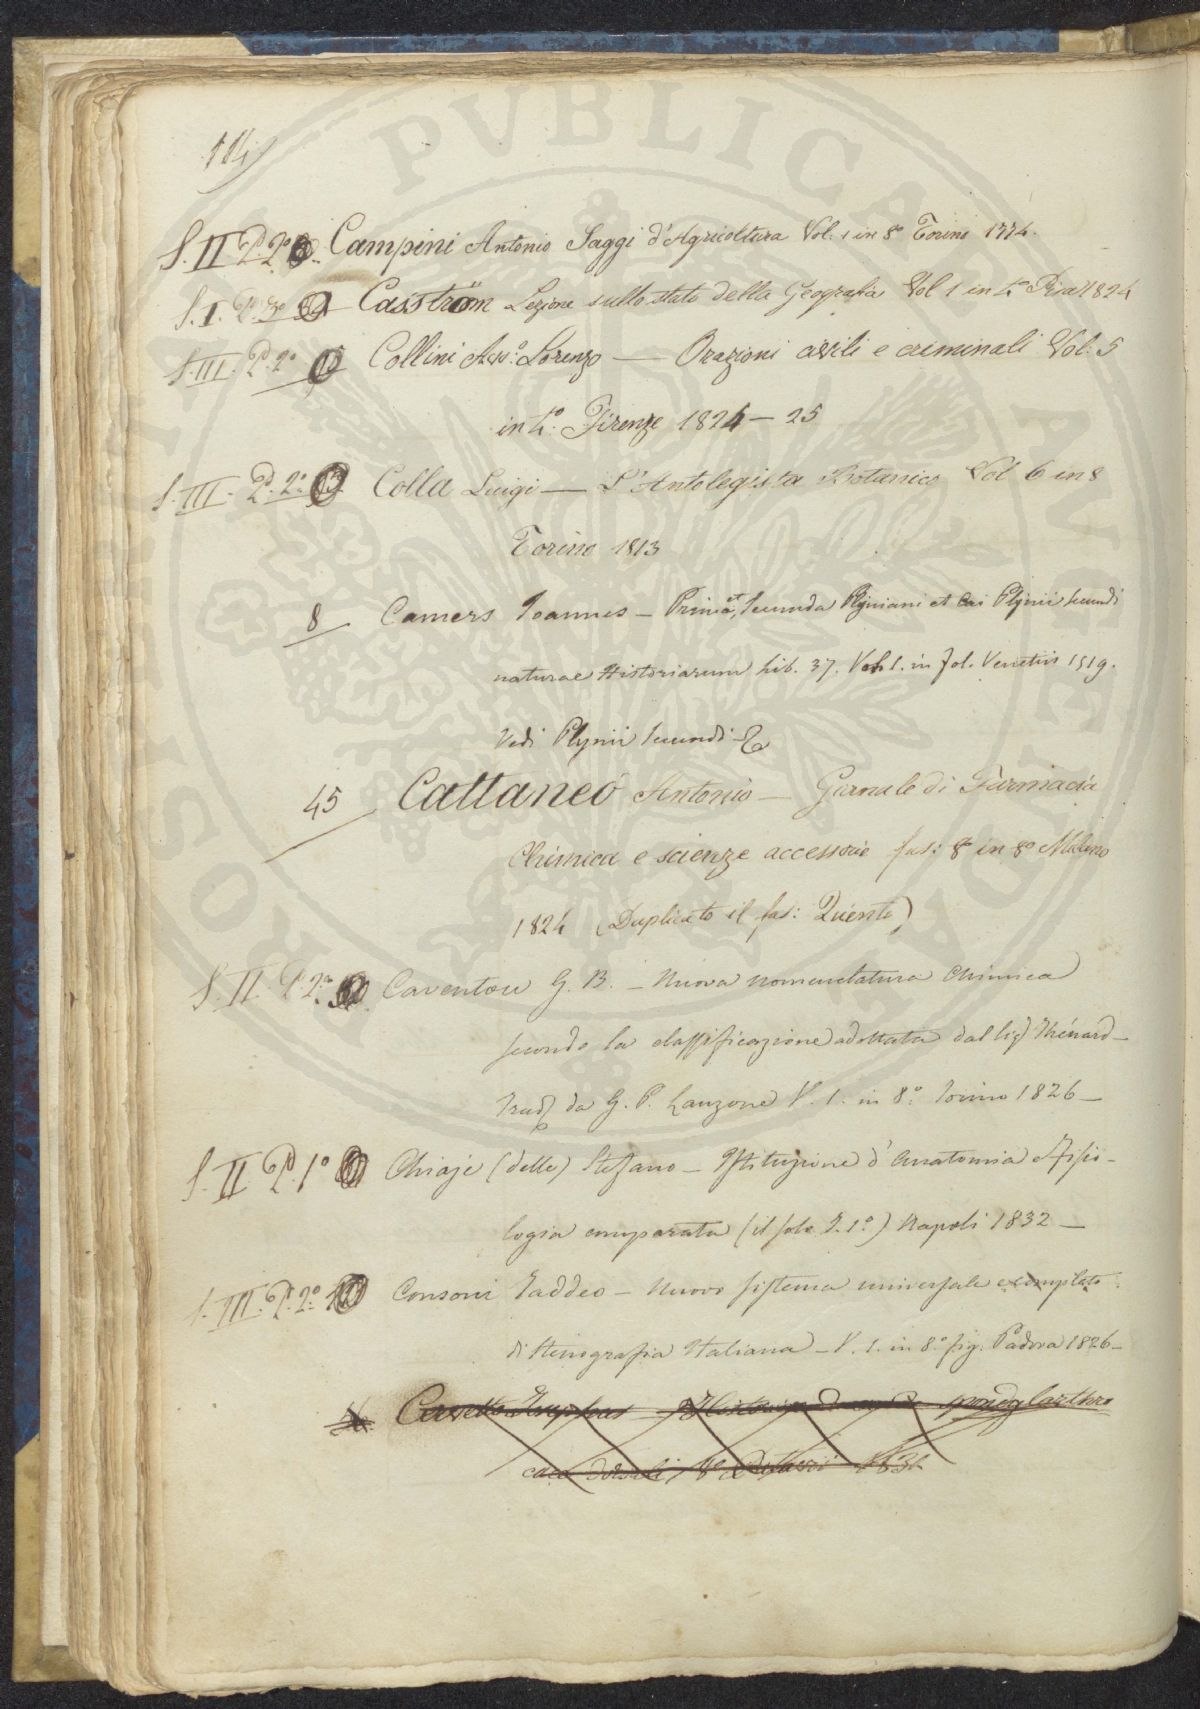 114
S. II. P. 2° Campini Antonio Saggi d'Agricoltura Vol. 1 in 8° Torino 1774.
S. I. P. 3° Casström Lezione sullo stato della Geografia Vol 1 in 4° Pisa 1824
S. III. P. 2° Collini Avv.° Lorenzo — Orazioni civili e criminali Vol. 5
in 4.° Firenze 1824 — 25
S. III. P. 2.° Colla Luigi — L'Antolegista Botanico Vol 6 in 8
Torino 1813
8 Camers Joannes — Prima, et Secunda Plyniani et Cai Plynii Secundi
naturae Historiarum Lib. 37. Vol. 1. in fol. Venetiis 1519.
Vedi Plynii Secundi
45 Cattaneo Antonio — Giornale di Farmacia
Chimica e scienze accessorie fas: 8 in 8° Milano
1824 (Duplicato il fas: Quinto)
S. II. P. 2.° Caventou G. B. — Nuova nomenclatura Chimica
secondo la classificazione adottata dal Sig Thénard —
Trad da G. P. Lanzone V. 1. in 8.° Torino 1826 —
S. II. P. 1° Chiaje (delle) Stefano — Istituzione d'Anatomia e Fisio-
logia comparata (il solo T. 1.°) Napoli 1832 —
S. III. P. 2.° Consoni Taddeo — Nuovo sistema universale e completo
di Stenografia Italiana — V. 1. in 8.° fig. Padova 1826 —
PVBLICA